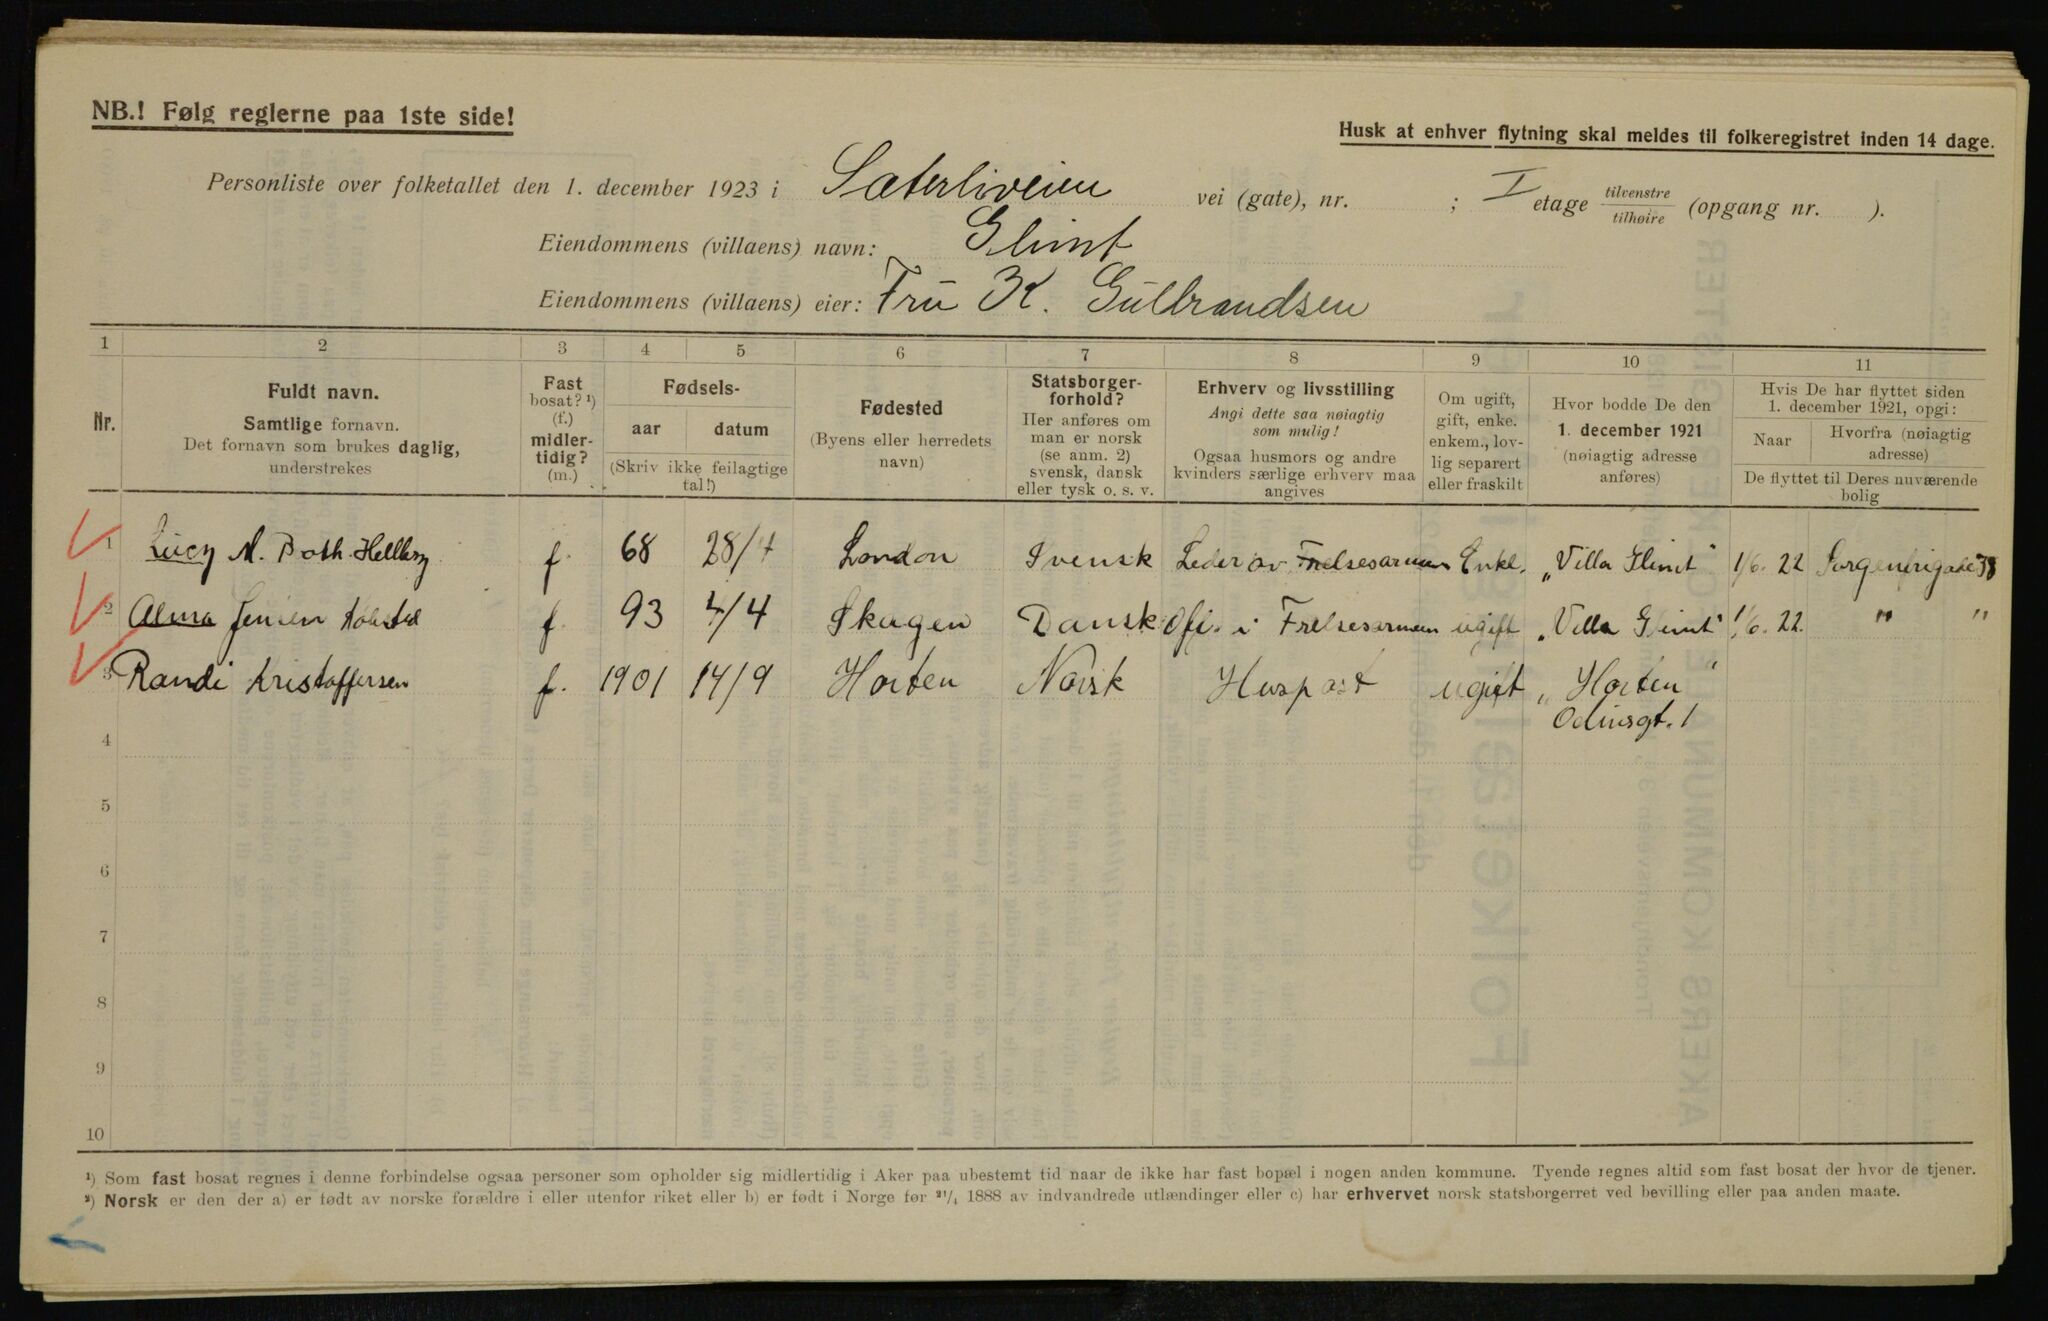 NB.! Følg reglerne paa 1ste side!
Husk at enhver flytning skal meldes til folkeregistret inden 14 dage.
Personliste over folketallet den 1. december 1923 i Sæterliveien vei (gate), nr. ; I etage tilvenstre tilhøire (opgang nr. ).
Eiendommens (villaens) navn: Glimt
Eiendommens (villaens) eier: Fru K. Gulbrandsen
1 2 3 4 5 6 7 8 9 10 11
Nr.
Fuldt navn.
Samtlige fornavn.
Det fornavn som brukes daglig,
understrekes
Fast
bosat? ¹)
(f.)
midler-
tidig?
(m.)
Fødsels-
aar datum
(Skriv ikke feilagtige
tal!)
Fødested
(Byens eller herredets
navn)
Statsborger-
forhold?
Her anføres om
man er norsk
(se anm. 2)
svensk, dansk
eller tysk o. s. v.
Erhverv og livsstilling
Angi dette saa nøiagtig
som mulig!
Ogsaa husmors og andre
kvinders særlige erhverv maa
angives
Om ugift,
gift, enke.
enkem., lov-
lig separert
eller fraskilt
Hvor bodde De den
1. december 1921
(nøiagtig adresse
anføres)
Hvis De har flyttet siden
1. december 1921, opgi:
Naar
Hvorfra (nøiagtig
adresse)
De flyttet til Deres nuværende
bolig
1 Lucy M. Booth-Hellberg f. 68 28/4 London Svensk Leder av Frelsesarmeen Enke. „Villa Glimt" 1/6. 22 Sorgenfrigade 38
2 Alma Jensen f. 93 4/4 Skagen Dansk Ofi. i Frelsesarmeen ugift „Villa Glimt" 1/6. 22. " "
3 Randi Kristoffersen f. 1901 14/9 Horten Norsk Huspost ugift „Horten"
Odinsgt. 1
4
5
6
7
8
9
10
¹) Som fast bosat regnes i denne forbindelse ogsaa personer som opholder sig midlertidig i Aker paa ubestemt tid naar de ikke har fast bopæl i nogen anden kommune. Tyende regnes altid som fast bosat der hvor de tjener.
²) Norsk er den der a) er født av norske forældre i eller utenfor riket eller b) er født i Norge før ²¹/₄ 1888 av indvandrede utlændinger eller c) har erhvervet norsk statsborgerret ved bevilling eller paa anden maate.